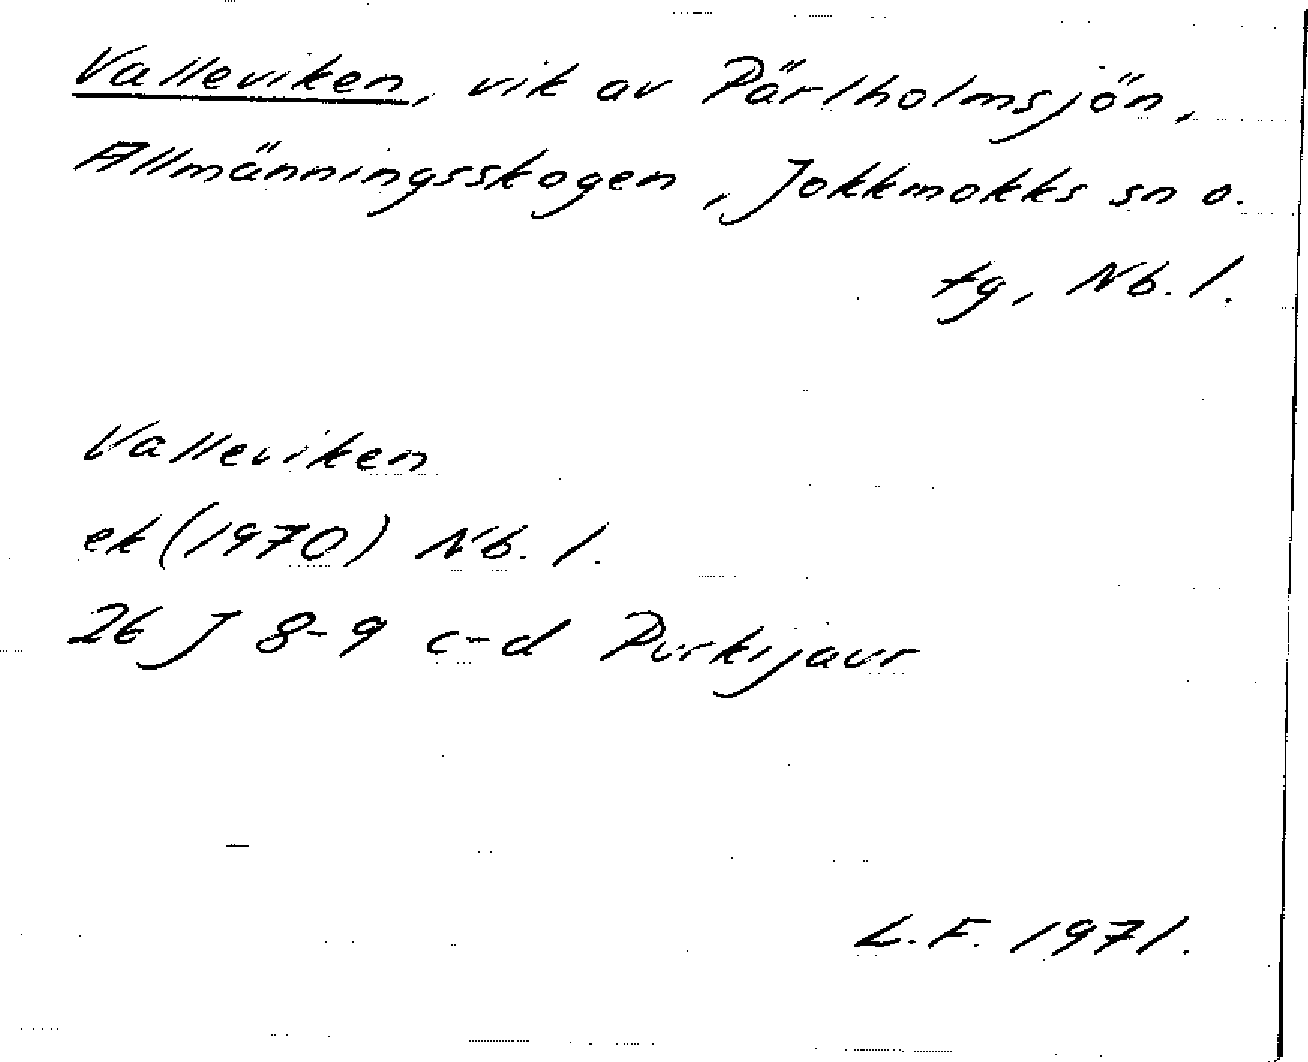 Valleviken, vik av Pärlholmsjön,
Allmänningsskogen, Jokkmokks sn o.
tg, Nb. l.
Valleviken
ek (1970) Nb. l.
26 J 8-9 c-d Purkijaur
L.F. 1971.